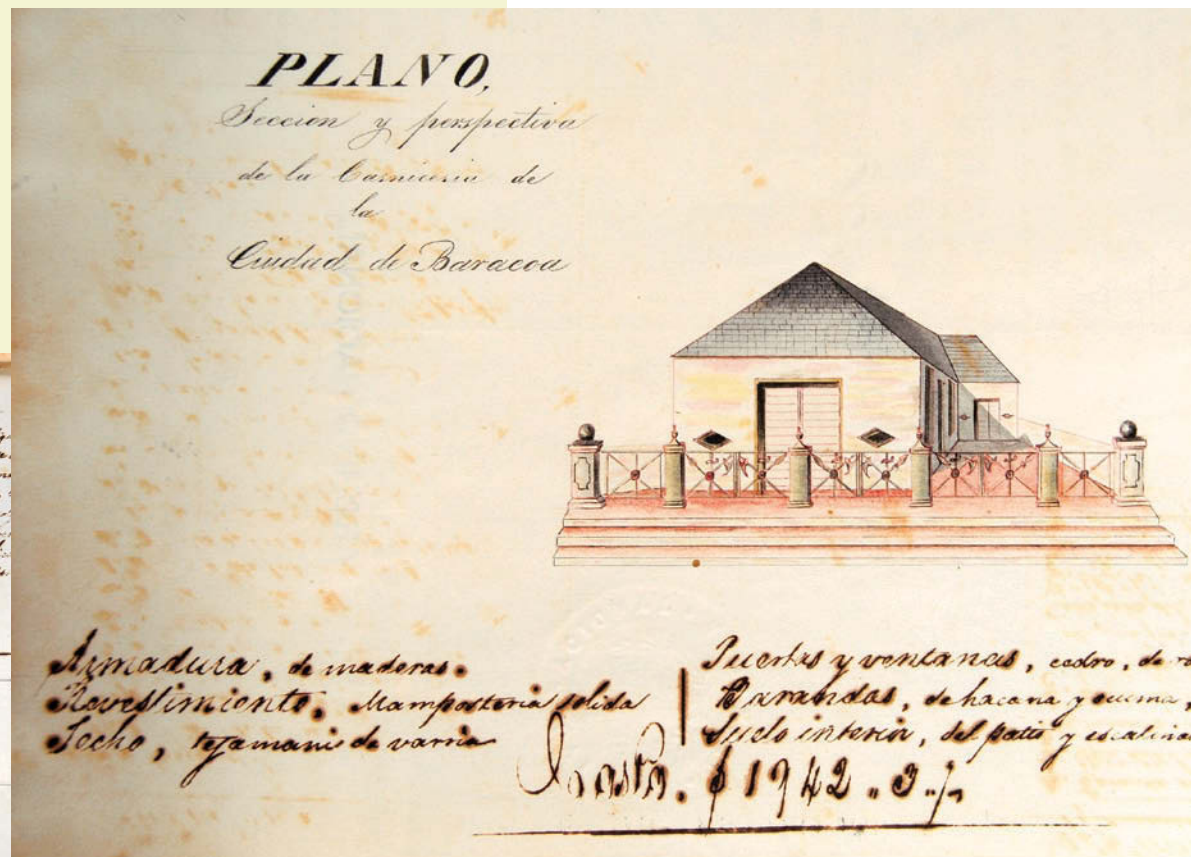 PLANO,
Seccion y perspectiva
de la Carniceria de
la
Ciudad de Baracoa
Armadura, de maderas.
Revestimiento, Mamposteria solida
Techo, tejamani de
Puertas y ventanas, cedro, de
Barandas, de hacana y
Suelo interior, del patio y
$1942.3.